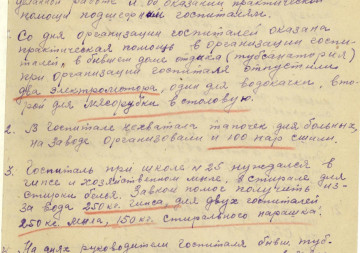 данной работе и об оказании практической
помощи подшефным госпиталям.
Со дня организации госпиталей оказана
практическая помощь в организации госпи-
талей, в бывшем доме отдыха (тубсанатория)
при организации госпиталя отпустили
два электромотора, один для водокачки, вто-
рой для мясорубки в столовую.
2. В госпитале нехватало тапочек для больных,
на заводе организовали и 100 пар сшили.
3. Госпиталь при школе №25 нуждался в
гипсе и хозяйственном мыле, и стирале для
стирки белья. Завком помог получить из-
за вода 250 кг. гипса, для двух госпиталей
250 кг. мыла, 150 кг. стирального порашка.
На днях руководители госпиталя бывш туб.